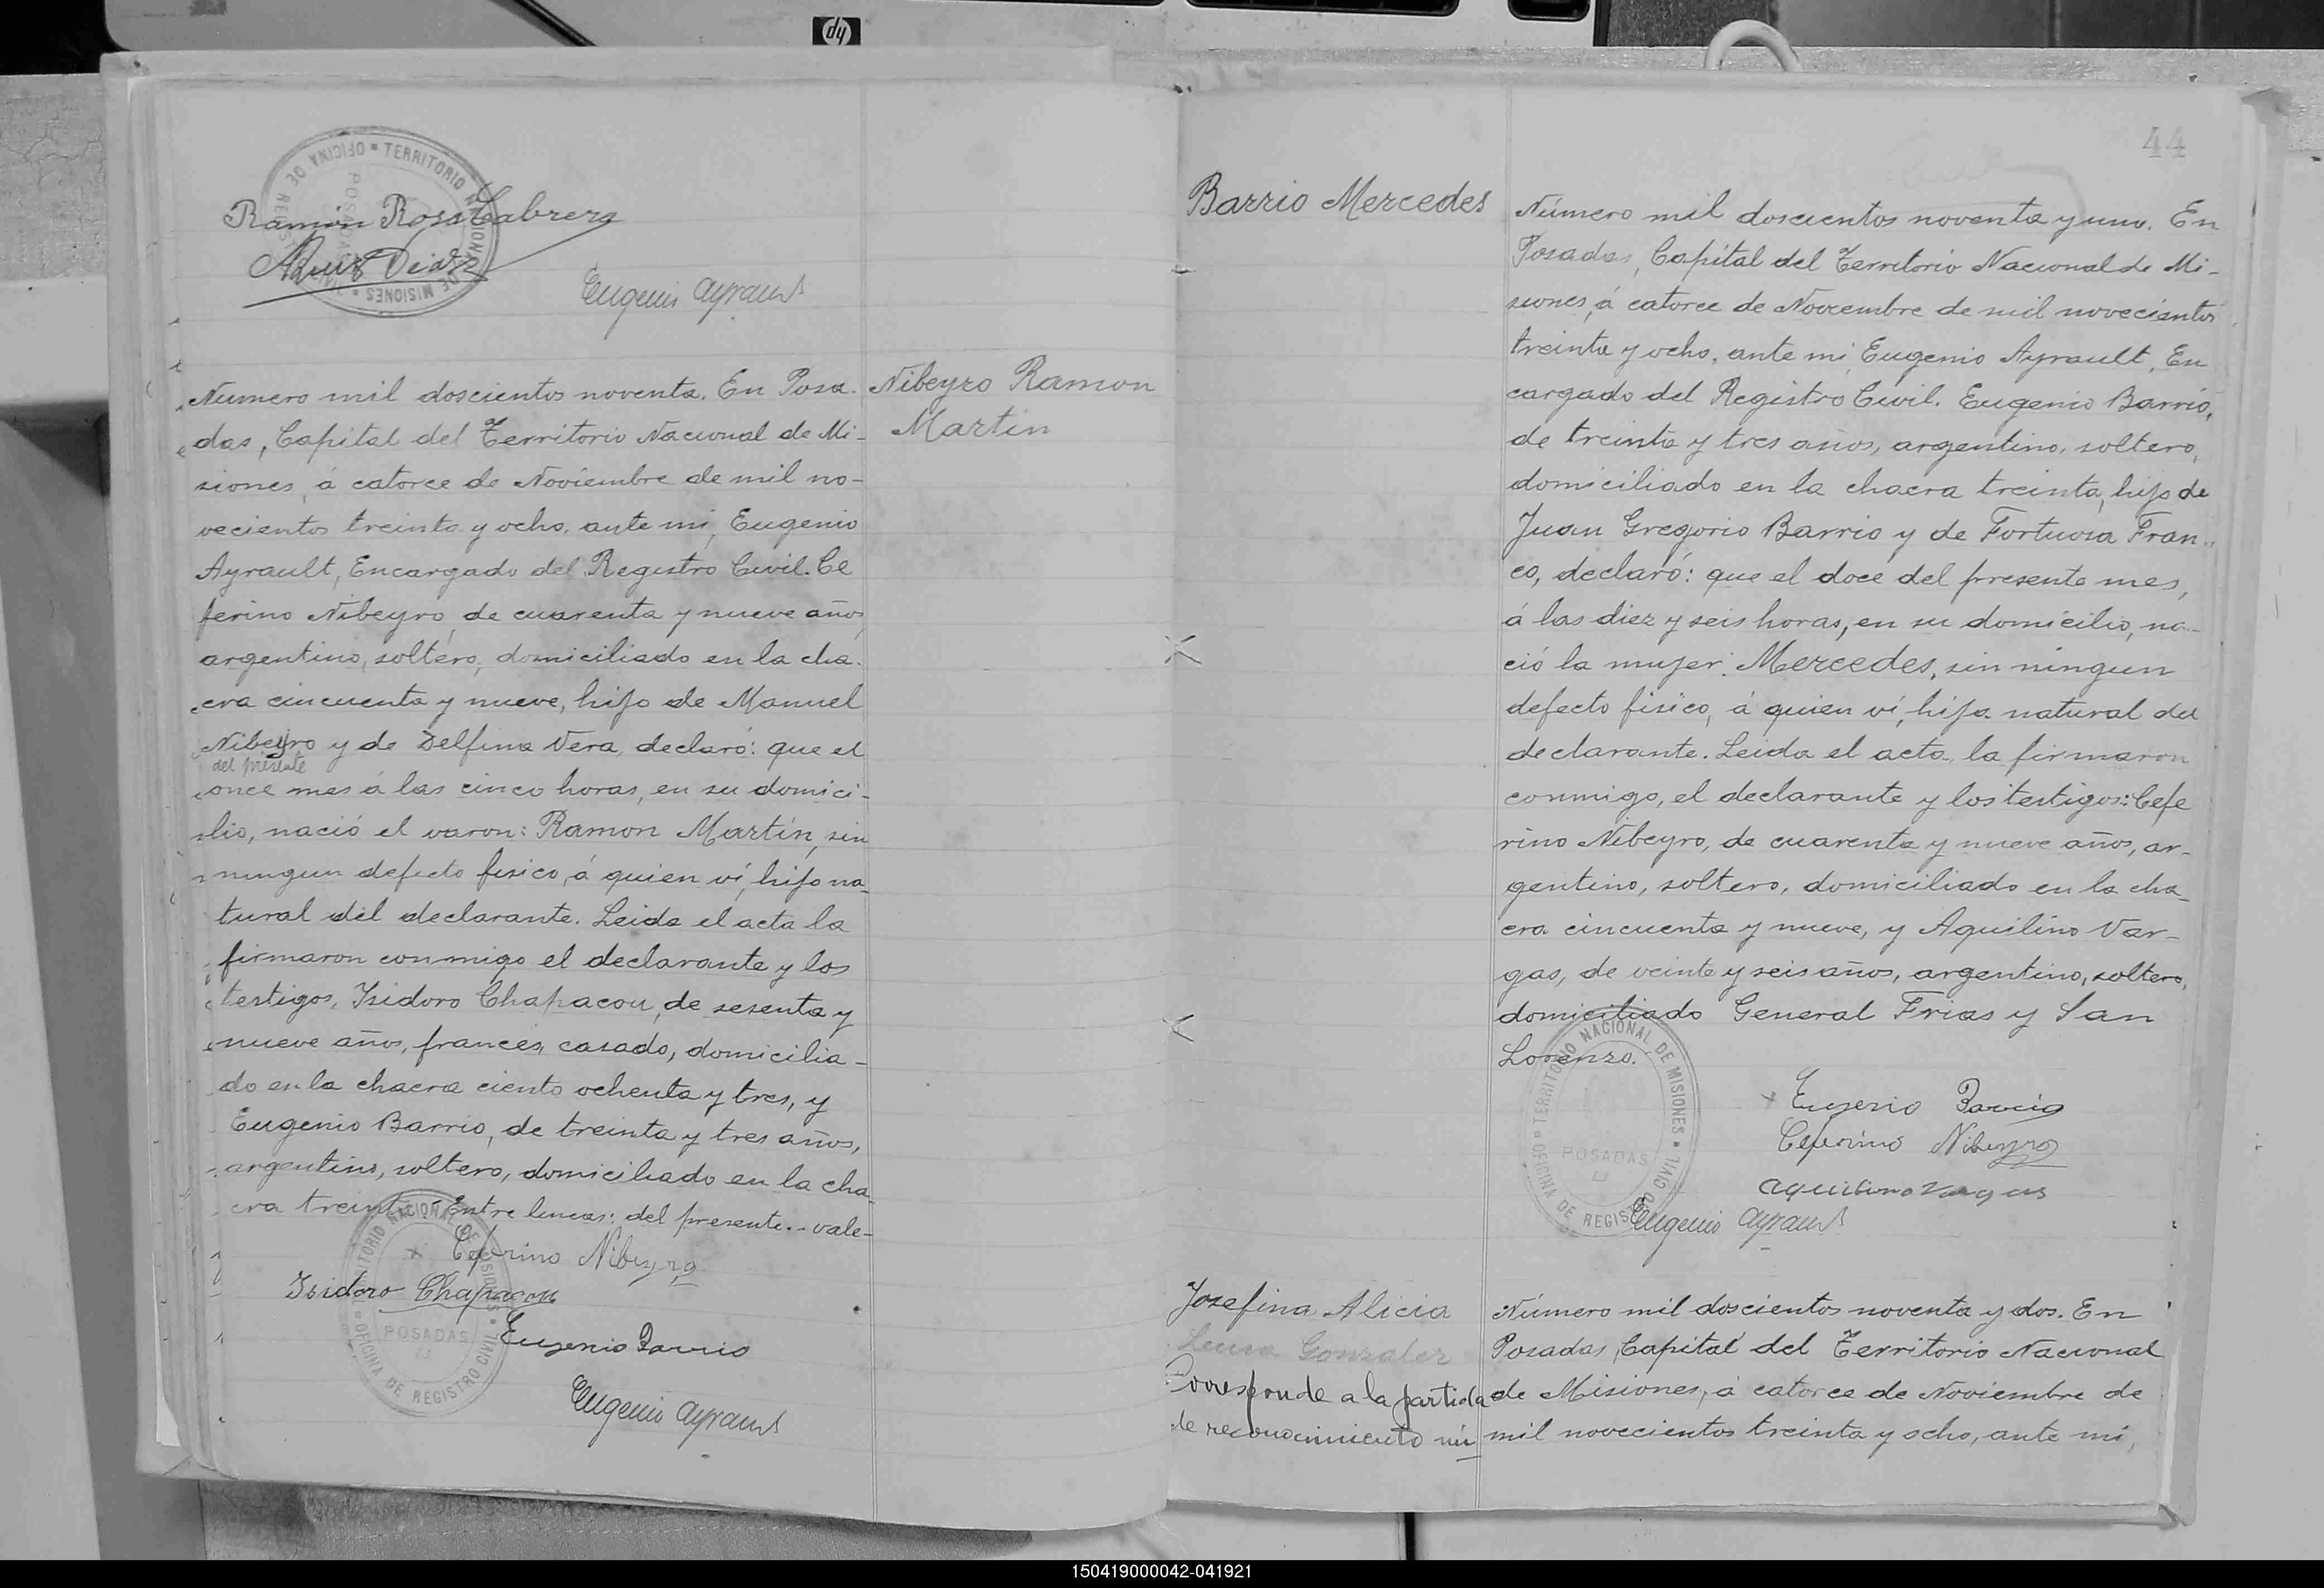 hp
TERRITORIO NACIONAL DE MISIONES
OFICINA DE REGISTRO CIVIL
POSADAS
Ramón Rosa Cabrera
Diaz
Eugenio Ayrault
Número mil doscientos noventa. En Posa-
das, Capital del Territorio Nacional de Mi-
siones, á catorce de Noviembre de mil no-
vecientos treinta y ocho, ante mi, Eugenio
Ayrault, Encargado del Registro Civil. Ce
ferino Nibeyro, de cuarenta y nueve años,
argentino, soltero, domiciliado en la cha-
cra cincuenta y nueve, hijo de Manuel
Nibeyro y de Delfina Vera, declaró: que el
del presente
once mes á las cinco horas, en su domici-
lio, nació el varon: Ramon Martin, sin
ningun defecto fisico, á quien ví, hijo na-
tural del declarante. Leida el acta la
firmaron conmigo el declarante y los
testigos, Isidoro Chapacou, de sesenta y
nueve años, francés, casado, domicilia-
do en la chacra ciento ochenta y tres, y
Eugenio Barrio, de treinta y tres años,
argentino, soltero, domiciliado en la cha-
cra treinta. Entre lineas: del presente.-vale-
Ceferino Nibeyro
Isidoro Chapacou
Eugenio Barrio
Eugenio Ayrault
TERRITORIO NACIONAL DE MISIONES
OFICINA DE REGISTRO CIVIL
POSADAS
Nibeyro Ramon
Martin
44
Barrio Mercedes
Número mil doscientos noventa y uno. En
Posadas, Capital del Territorio Nacional de Mi-
siones, á catorce de Noviembre de mil novecientos
treinta y ocho, ante mi, Eugenio Ayrault, En
cargado del Registro Civil. Eugenio Barrio,
de treinta y tres años, argentino, soltero,
domiciliado en la chacra treinta, hijo de
Juan Gregorio Barrio y de Fortuosa Fran-
co, declaró: que el doce del presente mes,
á las diez y seis horas, en su domicilio, na-
ció la mujer: Mercedes, sin ningun
defecto fisico, á quien ví, hija natural del
declarante. Leida el acta, la firmaron
conmigo, el declarante y los testigos: Cefe
rino Nibeyro, de cuarenta y nueve años, ar-
gentino, soltero, domiciliado en la cha-
cra cincuenta y nueve, y Aquilino Var-
gas, de veinte y seis años, argentino, soltero,
domiciliado General Frias y San
Lorenzo.
Eugenio Barrio
Ceferino Nibeyro
Aquilino Vargas
Eugenio Ayrault
TERRITORIO NACIONAL DE MISIONES
OFICINA DE REGISTRO CIVIL
POSADAS
Josefina Alicia
Luisa Gonzalez
Corresponde a la partida
de reconocimiento nú
Número mil doscientos noventa y dos. En
Posadas, Capital del Territorio Nacional
de Misiones, á catorce de Noviembre de
mil novecientos treinta y ocho, ante mi,
150419000042-041921